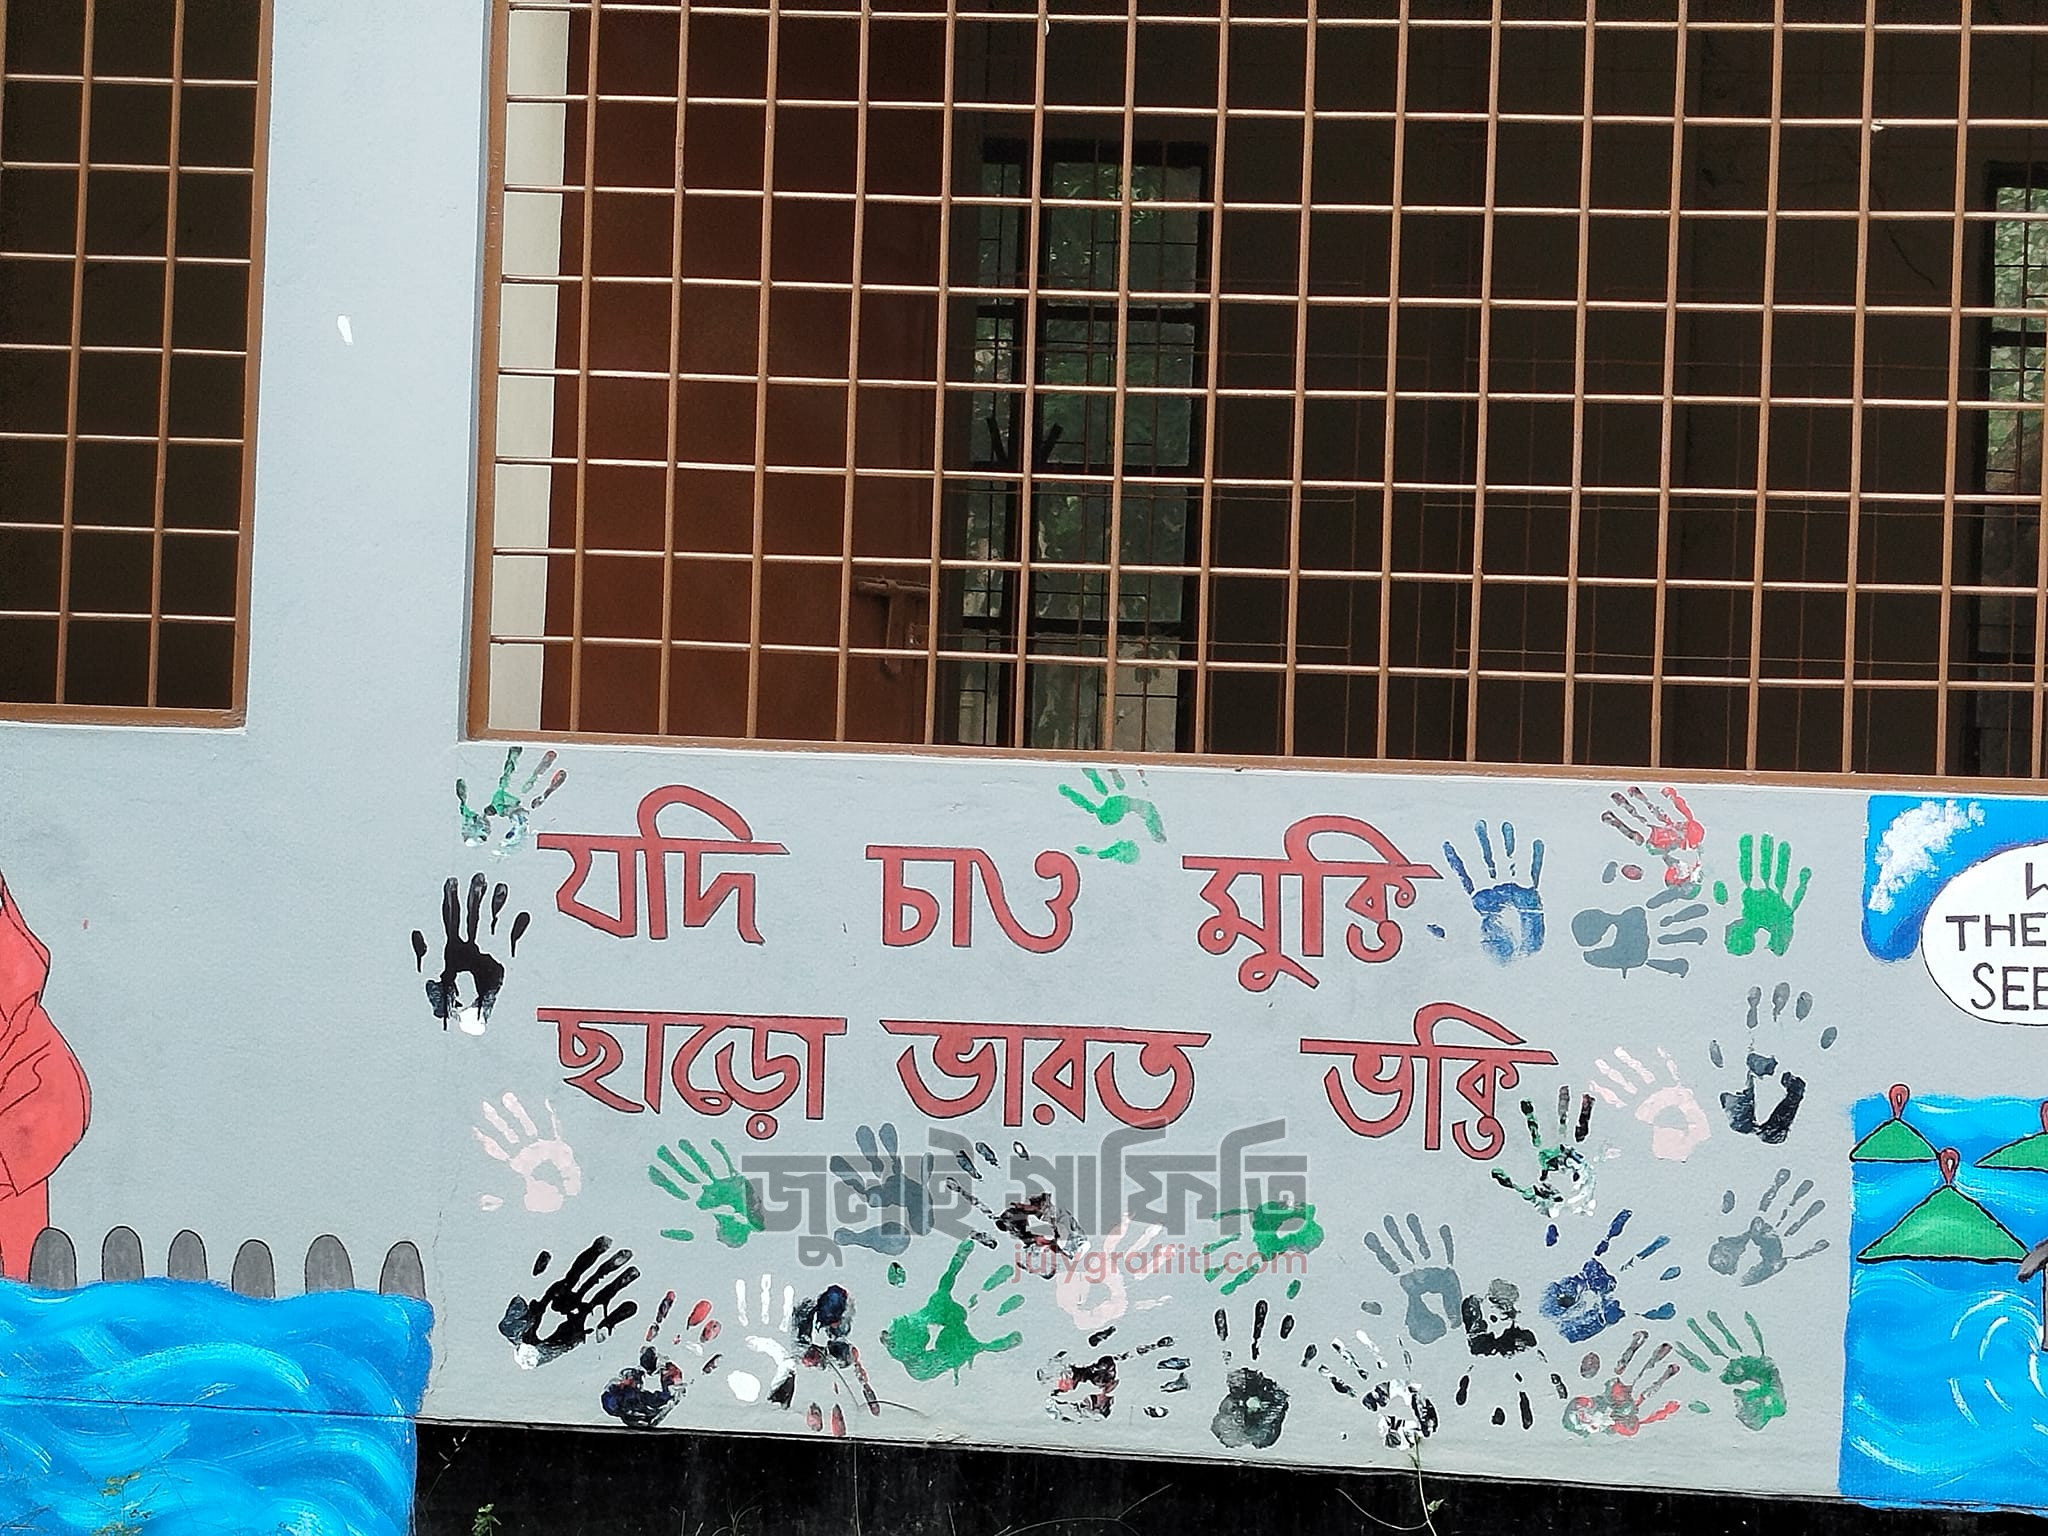 যদি চাও মুক্তি
ছাড়ো ভারত ভক্তি
জুলাই গ্রাফিতি
julygraffiti.com